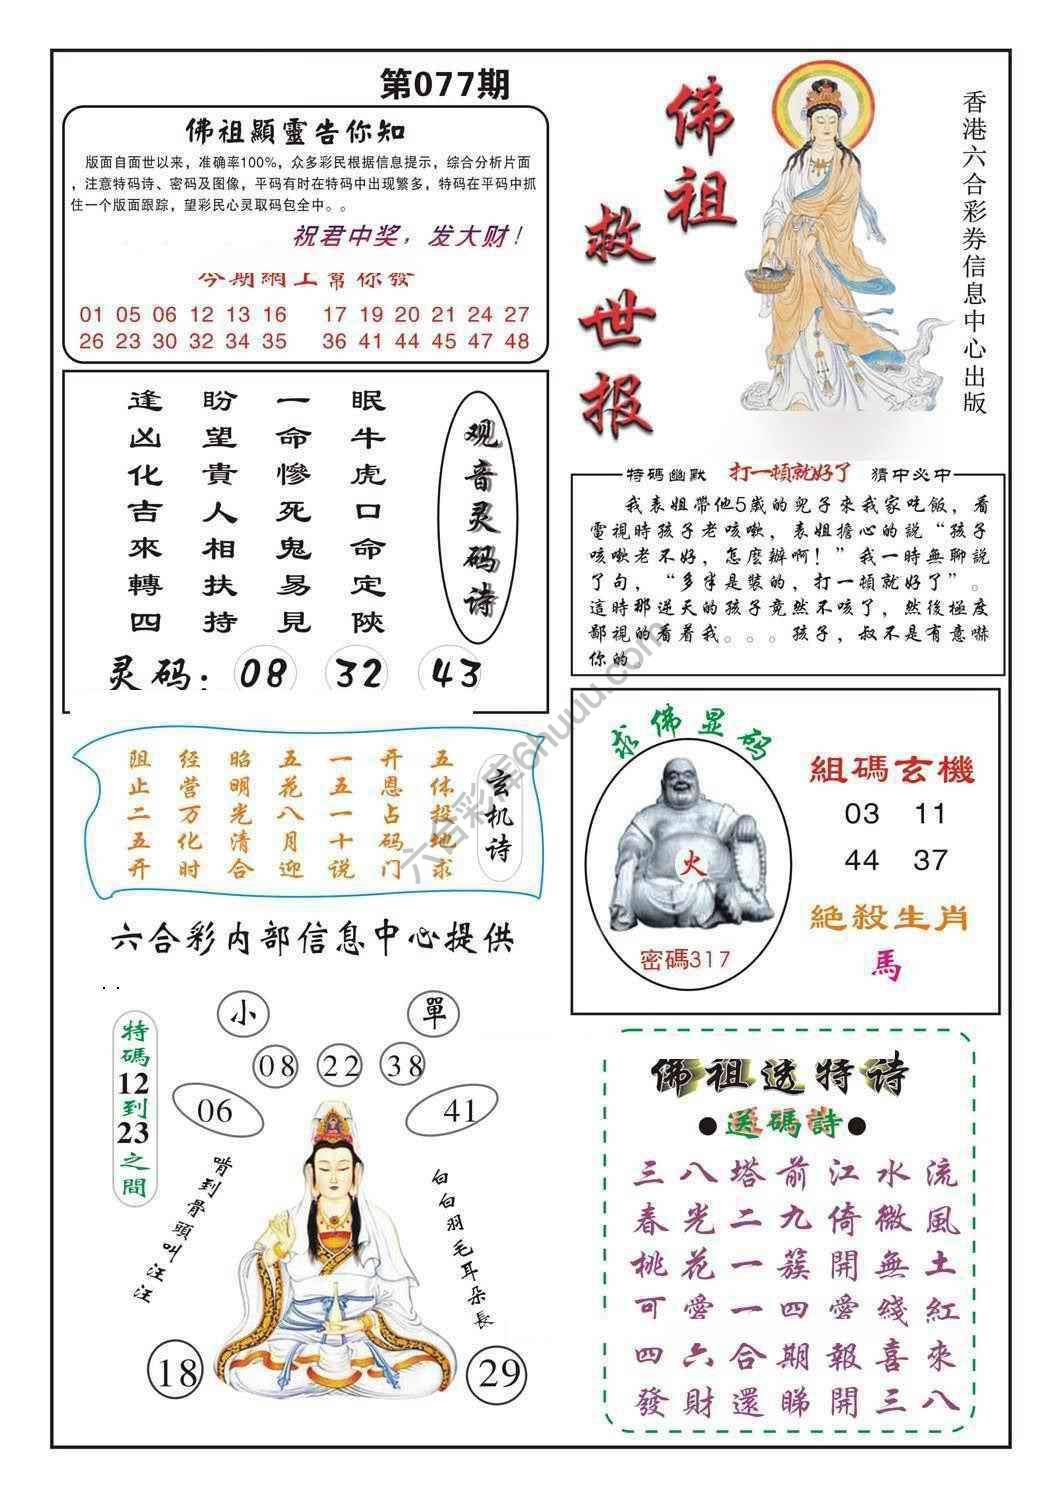 第077期
佛祖顯靈告你知
版面自面世以来，准确率100%，众多彩民根据信息提示，综合分析片面
，注意特码诗、密码及图像，平码有时在特码中出现繁多，特码在平码中抓
住一个版面跟踪，望彩民心灵取码包全中。。
祝君中奖，发大财！
今期網上幫你發
01 05 06 12 13 16 17 19 20 21 24 27
26 23 30 32 34 35 36 41 44 45 47 48
佛祖
救世报
香港六合彩券信息中心出版
观音灵码诗
眠牛虎口命定陝
一命慘死鬼易見
盼望貴人相扶持
逢凶化吉來轉四
灵码：08 32 43
特碼幽默 打一頓就好了 猜中必中
我表姐帶他5歲的兒子來我家吃飯，看
電視時孩子老咳嗽，表姐擔心的説“孩子
咳嗽老不好，怎麽辦啊！”我一時無聊説
了句，“多半是裝的，打一頓就好了”。
這時那逆天的孩子竟然不咳了，然後極度
鄙視的看着我。。。孩子，叔不是有意嚇
你的
玄机诗
五体投地求
开恩占码门
一五一十说
五花八月迎
昭明光清合
经营万化时
阻止二五开
求佛显码
火
密碼317
組碼玄機
03 11
44 37
絕殺生肖
馬
六合彩内部信息中心提供
特碼12到23之間
小 單
08 22 38
06 41
啃到骨頭叫汪汪
白白羽毛耳朵長
18 29
佛祖透特诗
●送碼詩●
三八塔前江水流
春光二九倚微風
桃花一簇開無土
可愛一四愛綫紅
四六合期報喜來
發財還睇開三八
六合彩库6huuu.com